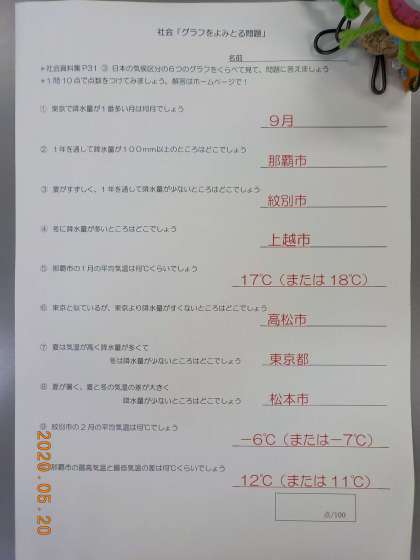 社会「グラフをよみとる問題」
名前
*社会資料集P31 ③ 日本の気候区分の6つのグラフをくらべて見て、問題に答えましょう
*1問10点で点数をつけてみましょう。解答はホームページで!
① 東京で降水量が1番多い月は何月でしょう
9月
② 1年を通して降水量が100mm以上のところはどこでしょう
那覇市
③ 夏がすずしく、1年を通して降水量が少ないところはどこでしょう
紋別市
④ 冬に降水量が多いところはどこでしょう
上越市
⑤ 那覇市の1月の平均気温は何℃くらいでしょう
17℃(または18℃)
⑥ 東京と似ているが、東京より降水量がすくないところはどこでしょう
高松市
⑦ 夏は気温が高く降水量が多くて
冬は降水量が少ないところはどこでしょう
東京都
⑧ 夏が暑く、夏と冬の気温の差が大きく
降水量が少ないところはどこでしょう
松本市
⑨ 紋別市の2月の平均気温は何℃でしょう
−6℃(または−7℃)
那覇市の最高気温と最低気温の差は何℃くらいでしょう
12℃(または11℃)
点/100
2020.05.20